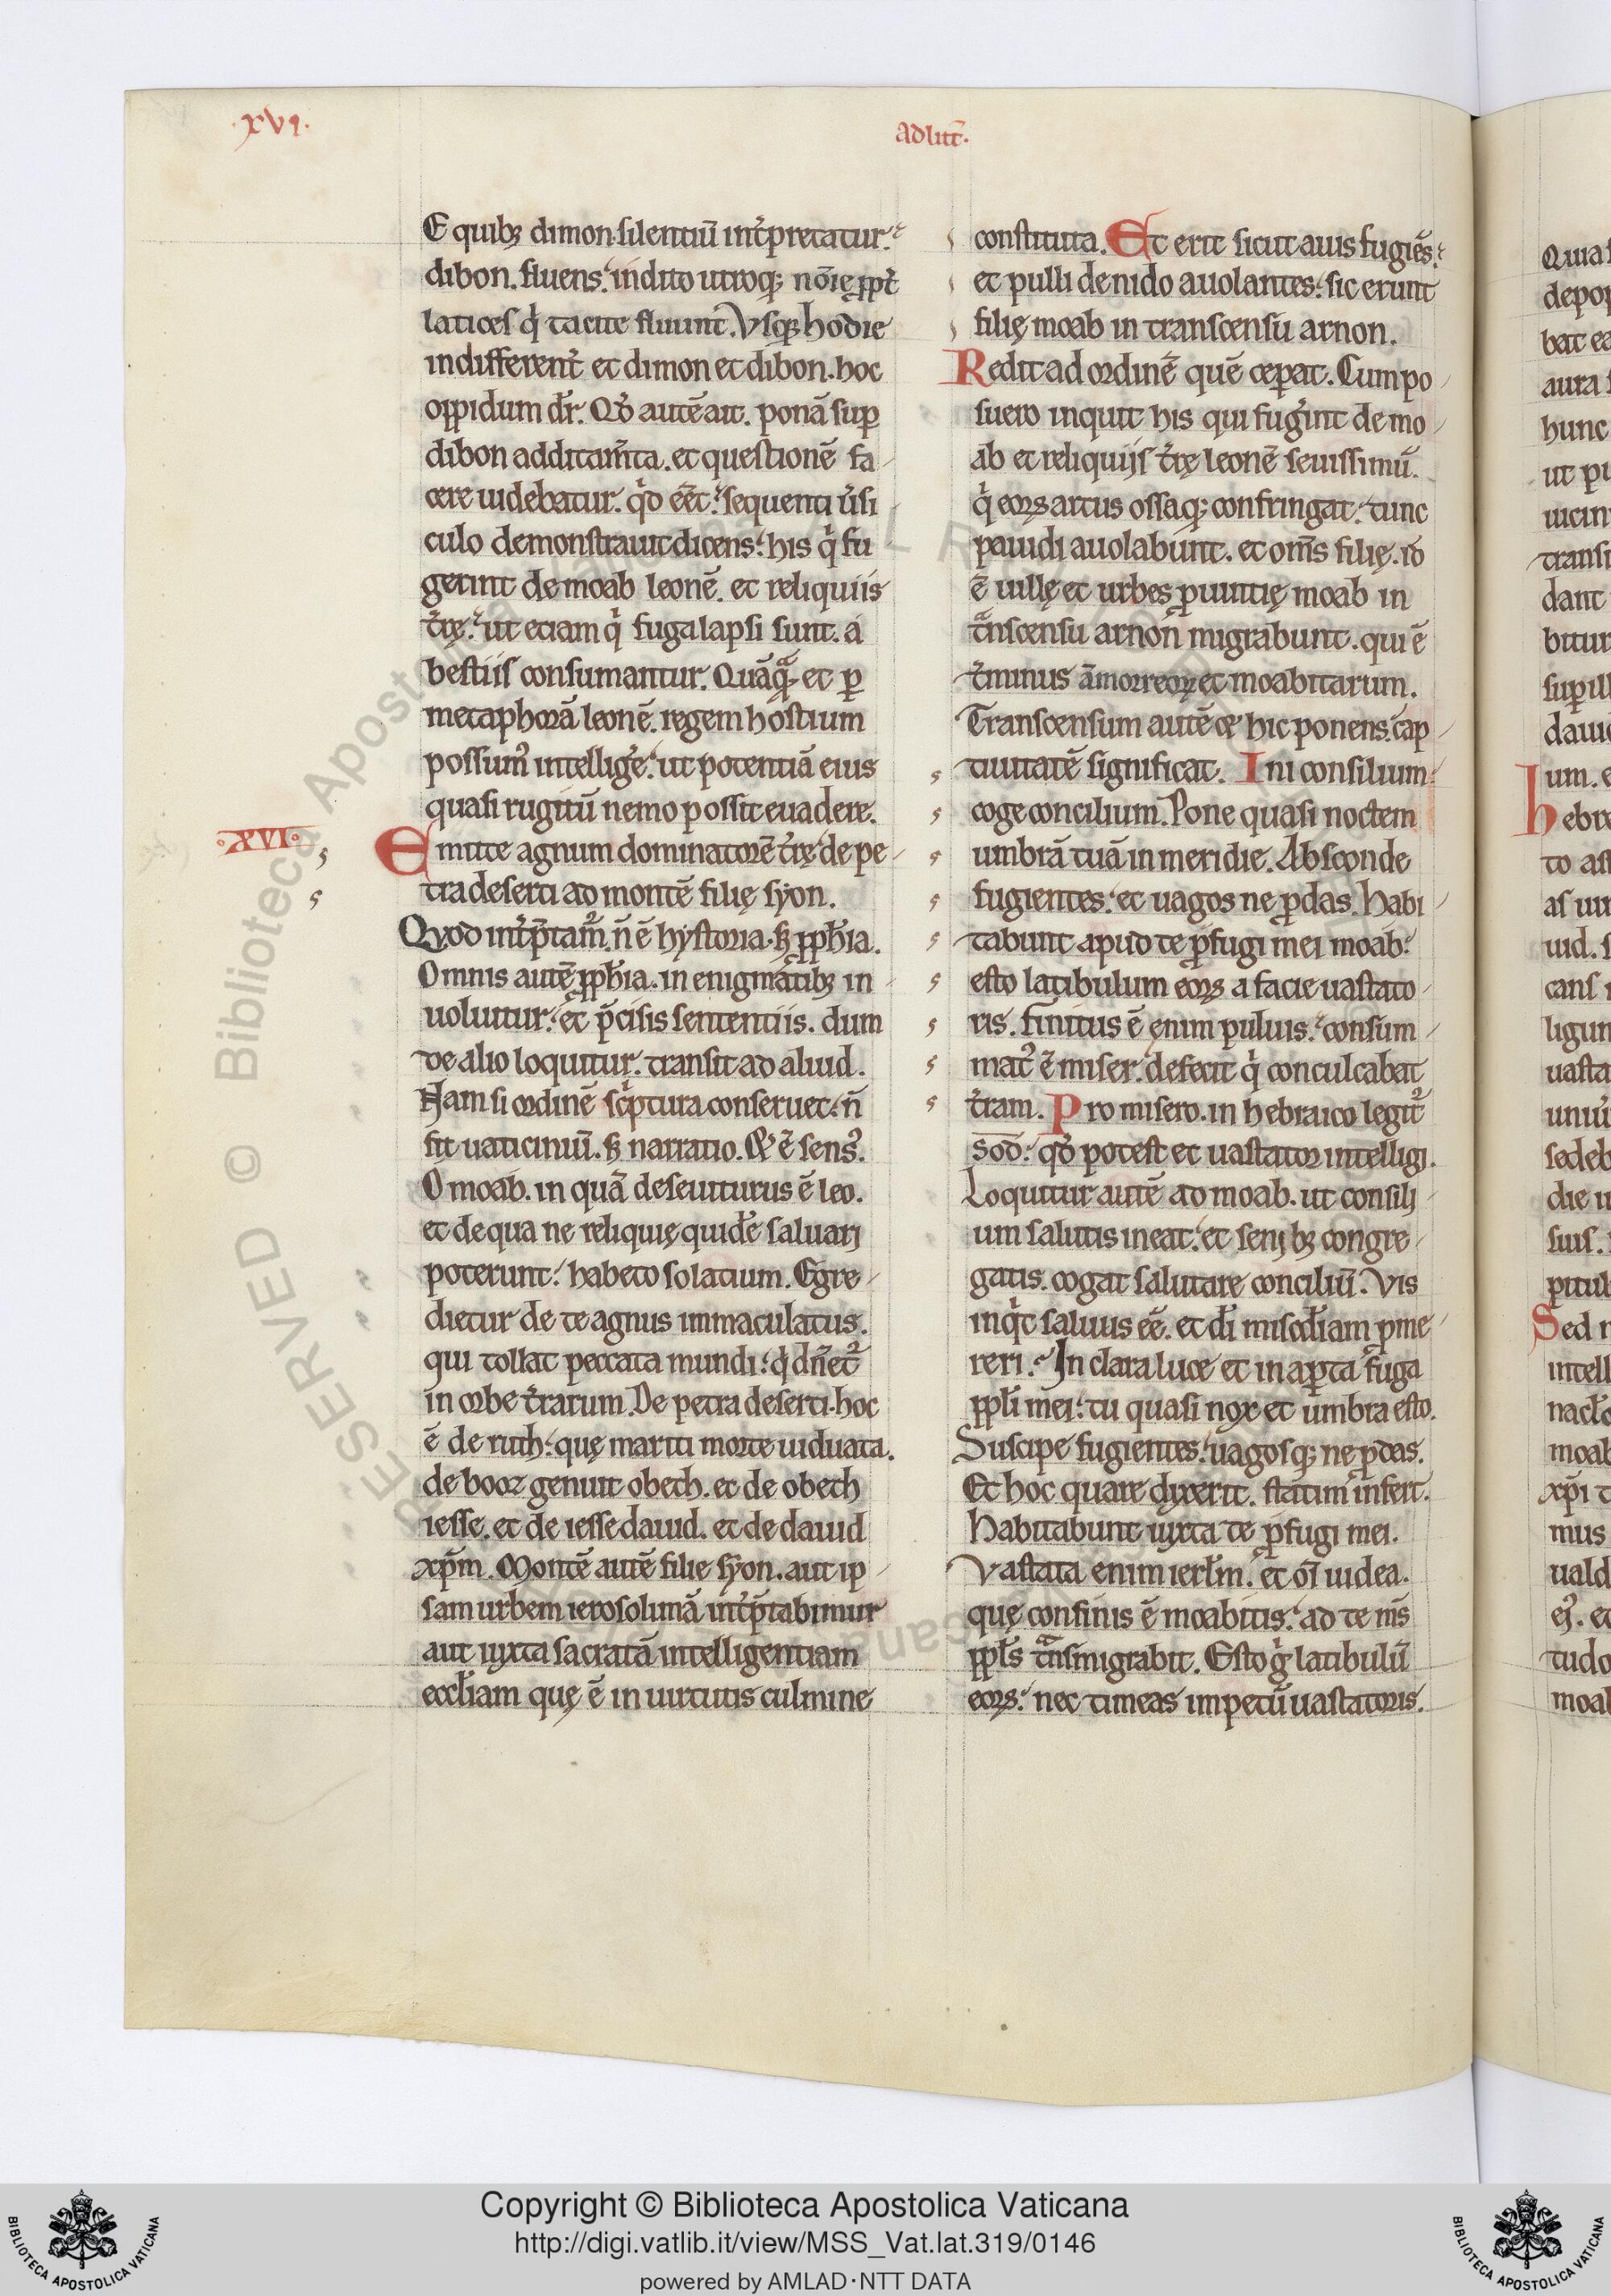 ·xvi·
adlitt̄·
E quibꝫ dimon·silentiū int͛pretatur.
dibon. fluens. indito utroq; nōīę ꝓpt͛
latices q̇ tacite fluunt. Vsqꝫ hodie
indifferent͛ et dimon et dibon. hoc
oppidum dr̄. Qđ autē ait. ponā suꝑ
dibon additam̄ta. et questionē fa
cere uidebatur. q̇d eēt. sequenti u͛si
culo demonstrauit dicens. his q̇ fu
gerint de moab leonē. et reliquiis
t͛rę. ut etiam q̇ fuga lapsi sunt. a
bestiis consumantur. Quāqᷓ. et ꝑ
metaphorā leonē. regem hostium
possumꝰ intellig͛e. ut potentiā eius
quasi rugitū nemo possit euadere.
·XVI·
Emitte agnum dominatorē t͛rę de pe
tra deserti ad montē filię syon.
Quod int͛p̄tamur. n̄ ē hystoria. sꝫ ꝓph̄ia.
Omnis autē ꝓph̄ia. in enigmatibꝫ in
uoluitur. et p̄cisis sententiis. dum
de alio loquitur. transit ad aliud.
Nam si ordinē sċptura conseruet. n̄
sit uaticiniū. sꝫ narratio. Qđ ē sensꝰ.
O moab. in quā deseuiturus ē leo.
et de qua ne reliquię quidē saluari
poterunt. habeto solatium. Egre
dietur de te agnus immaculatus.
qui tollat peccata mundi. q dn̄etᷣ
in orbe t͛rarum. De petra deserti. hoc
ē de ruth. quę mariti morte uiduata.
de booz genuit obeth. et de obeth
iesse. et de iesse dauid. et de dauid
xp̄m. Montē autē filie syon. aut ip
sam urbem ierosolimā int͛p̄tabimur
aut iuxta sacratā intelligentiam
eccl̄iam quę ē in uirtutis culmine
constituta. Et erit sicut auis fugiēs.
et pulli de nido auolantes. sic erunt
filię moab in transcensu arnon.
Redit ad ordinē quē ceꝑat. Cum po
suero inquit his qui fug͛int de mo
ab et reliquiis t͛rę leonē seuissimū.
q̇ eoꝝ artus ossaq; confringat. tunc
pauidi auolabunt. et om̄s filię. id
ē uillę et urbes ꝓuintię moab in
tᷓnscensu arnon migrabunt. qui ē
t͛minus amorreoꝝ et moabitarum.
Transcensum autē hic ponens. cap
tiuitatē significat. Ini consilium.
coge concilium. Pone quasi noctem
umbrā tuā in meridie. Absconde
fugientes. et uagos ne ꝓdas. Habi
tabunt apud te ꝓfugi mei moab.
esto latibulum eoꝝ a facie uastato
ris. Finitus ē enim puluis. consum
matꝰ ē miser. defecit q̇ conculcabat
t͛ram. Pro misero. in hebraico legitᷣ
sod. qđ potest et uastator intelligi.
Loquitur autē ad moab. ut consili
um salutis ineat. et senibꝫ congre
gatis. cogat salutare conciliū. Vis
inq̇t saluus eē. et dī misc̄diam ꝓme
reri. In clara luce et in aꝑta fuga
ppl̄i mei. tu quasi nox et umbra esto.
Suscipe fugientes. uagosq; ne ꝓdas.
Et hoc quare dixerit. statim infert.
Habitabunt iuxta te ꝓfugi mei.
Vastata enim ierl̄m. et oī iudea.
quę confinis ē moabitis. ad te m̄s
ppl̄s tᷓnsmigrabit. Esto g̊ latibulū
eoꝝ. nec timeas impetū uastatoris.
Copyright © Biblioteca Apostolica Vaticana
http://digi.vatlib.it/view/MSS_Vat.lat.319/0146
powered by AMLAD·NTT DATA